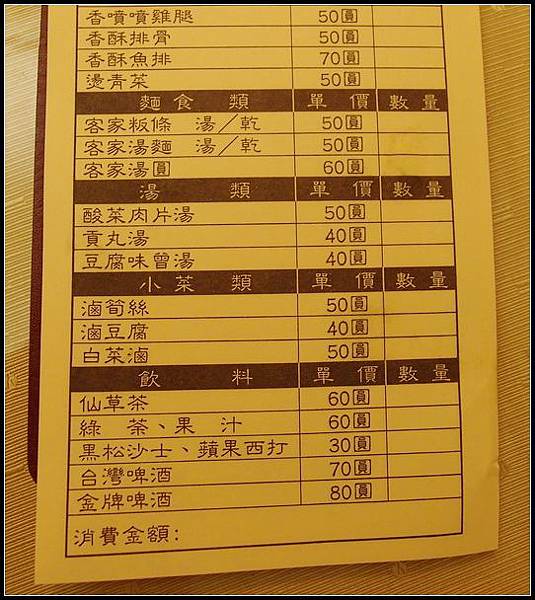 香噴噴雞腿 50圓
香酥排骨 50圓
香酥魚排 70圓
燙青菜 50圓
麵食類 單價 數量
客家粄條 湯／乾 50圓
客家湯麵 湯／乾 50圓
客家湯圓 60圓
湯類 單價 數量
酸菜肉片湯 50圓
貢丸湯 40圓
豆腐味曾湯 40圓
小菜類 單價 數量
滷筍絲 50圓
滷豆腐 40圓
白菜滷 50圓
飲料 單價 數量
仙草茶 60圓
綠茶、果汁 60圓
黑松沙士、蘋果西打 30圓
台灣啤酒 70圓
金牌啤酒 80圓
消費金額：